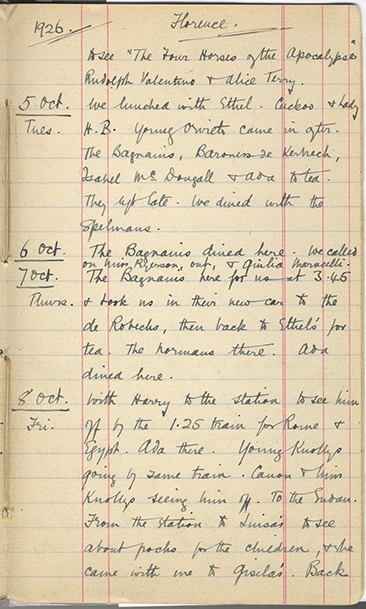 1926. Florence.
to see "The Four Horses of the Apocalypse"
Rudolph Valentino & Alice Terry.
5 Oct. We lunched with Ethel. Cuckoo & Lady
Tues. H.B. Young came in after.
The Bagnanis, Baroness de
Isabel McDougall & Ada to tea.
They left late. We dined with the
Spelmans.
6 Oct. The Bagnanis dined here. We called
on Miss Ryerson, out, & Giulia
7 Oct. The Bagnanis here for us at 3.45
Thurs. & took us in their new car to the
de Robecks, then back to Ethel's for
tea. The Normans there. Ada
dined here.
8 Oct. With Harry to the station to see him
Fri. off by the 1.25 train for Rome &
Egypt. Ada there. Young Knollys
going by same train. Canon & Miss
Knollys seeing him off. To the Sudan.
From the station to Luisa's to see
about frocks for the children, & she
came with me to Gisela's. Back